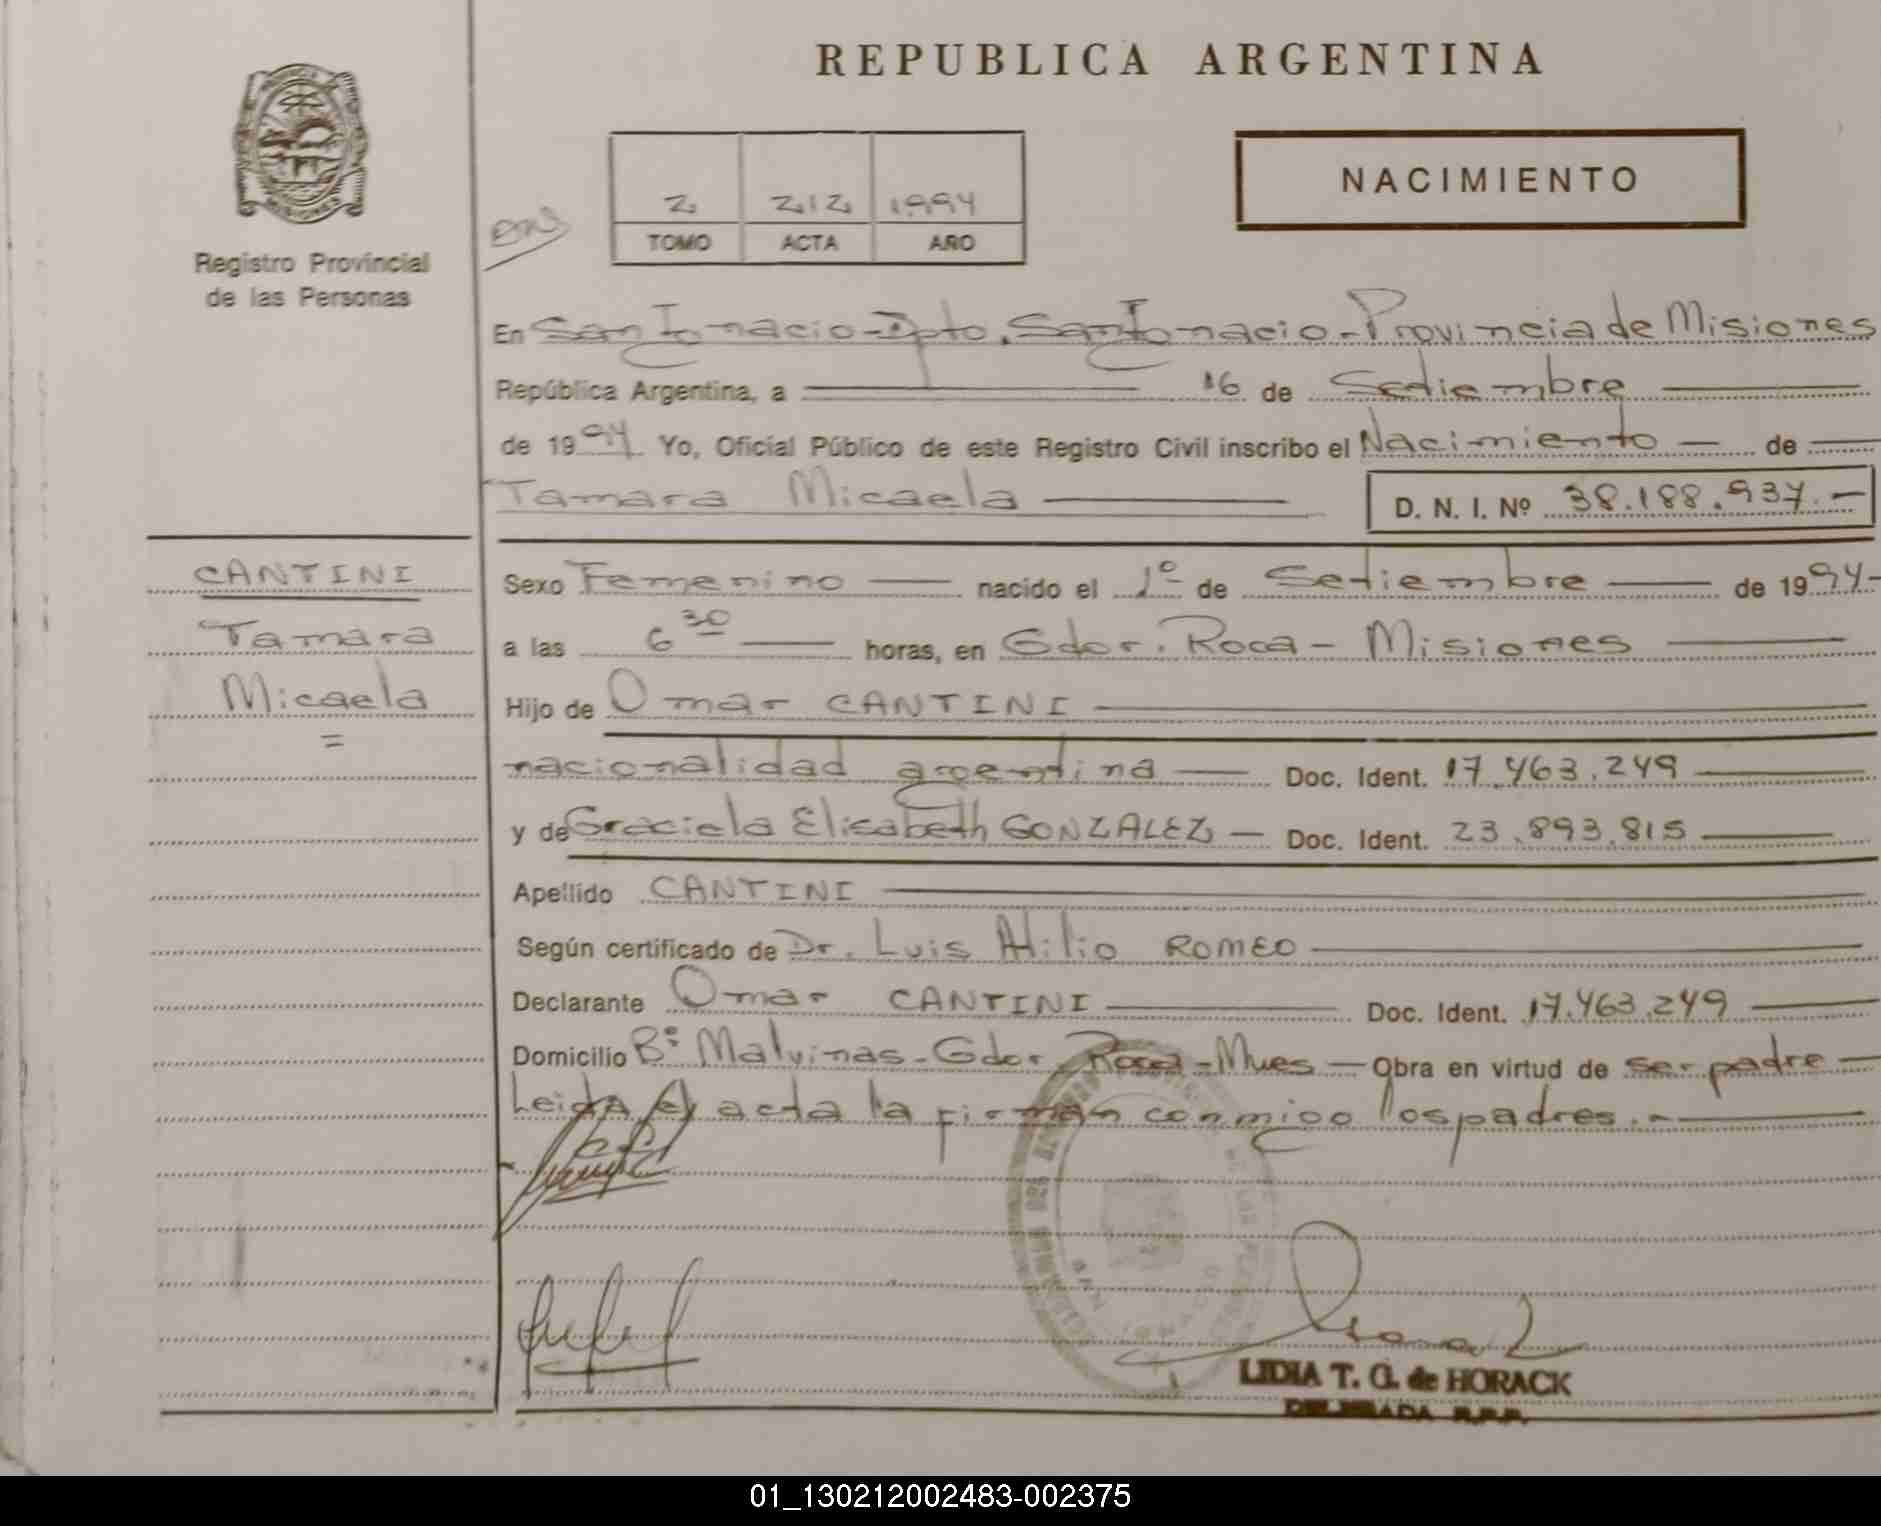 REPUBLICA ARGENTINA
MISIONES
Registro Provincial
de las Personas
2 212 1994
TOMO ACTA AÑO
NACIMIENTO
En San Ignacio - Dpto. San Ignacio - Provincia de Misiones
República Argentina, a 16 de Setiembre
de 1994 Yo, Oficial Público de este Registro Civil inscribo el Nacimiento — de
Tamara Micaela D. N. I. Nº 38.188.937.-
CANTINI
Tamara
Micaela
=
Sexo Femenino — nacido el 1º de Setiembre — de 1994-
a las 6 30 — horas, en Gdor. Roca - Misiones
Hijo de Omar CANTINI
nacionalidad argentina — Doc. Ident. 17.463.249
y de Graciela Elisabeth GONZALEZ — Doc. Ident. 23.893.815
Apellido CANTINI
Según certificado de Dr. Luis Atilio ROMEO
Declarante Omar CANTINI Doc. Ident. 17.463.249
Domicilio Bº Malvinas - Gdor Roca - Mnes — Obra en virtud de ser padre
Leida el acta la firman conmigo los padres.-
LIDIA T. G. de HORACK
DELEGADA R.P.P.
01_130212002483-002375